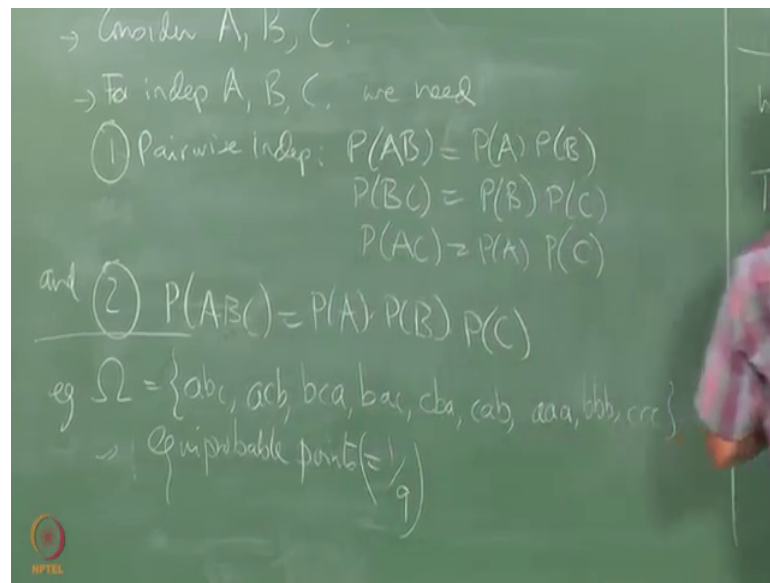 → Consider A, B, C:
→ For indep A, B, C, we need
① Pairwise indep: P(AB) = P(A) P(B)
P(BC) = P(B) P(C)
P(AC) = P(A) P(C)
and ② P(ABC) = P(A) · P(B) P(C)
eg Ω = {abc, acb, bca, bac, cba, cab, aaa, bbb, ccc}
equiprobable points (= 1/9)
NPTEL